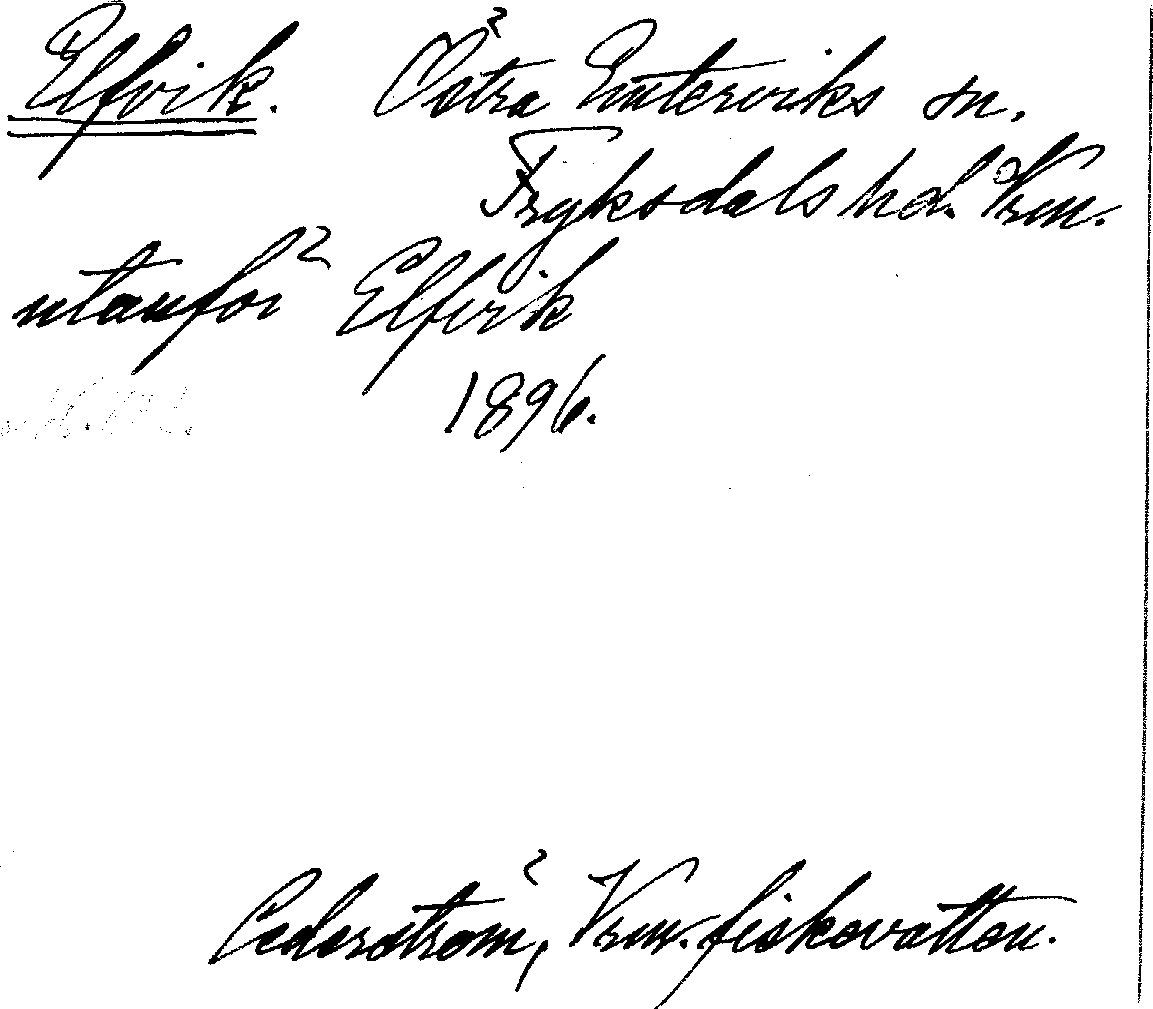 Elfvik. Östra Emterviks sn.
Fryksdals hd. Vrm.
utanför Elfvik
1896.
Cederström, Vrm. fiskevatten.